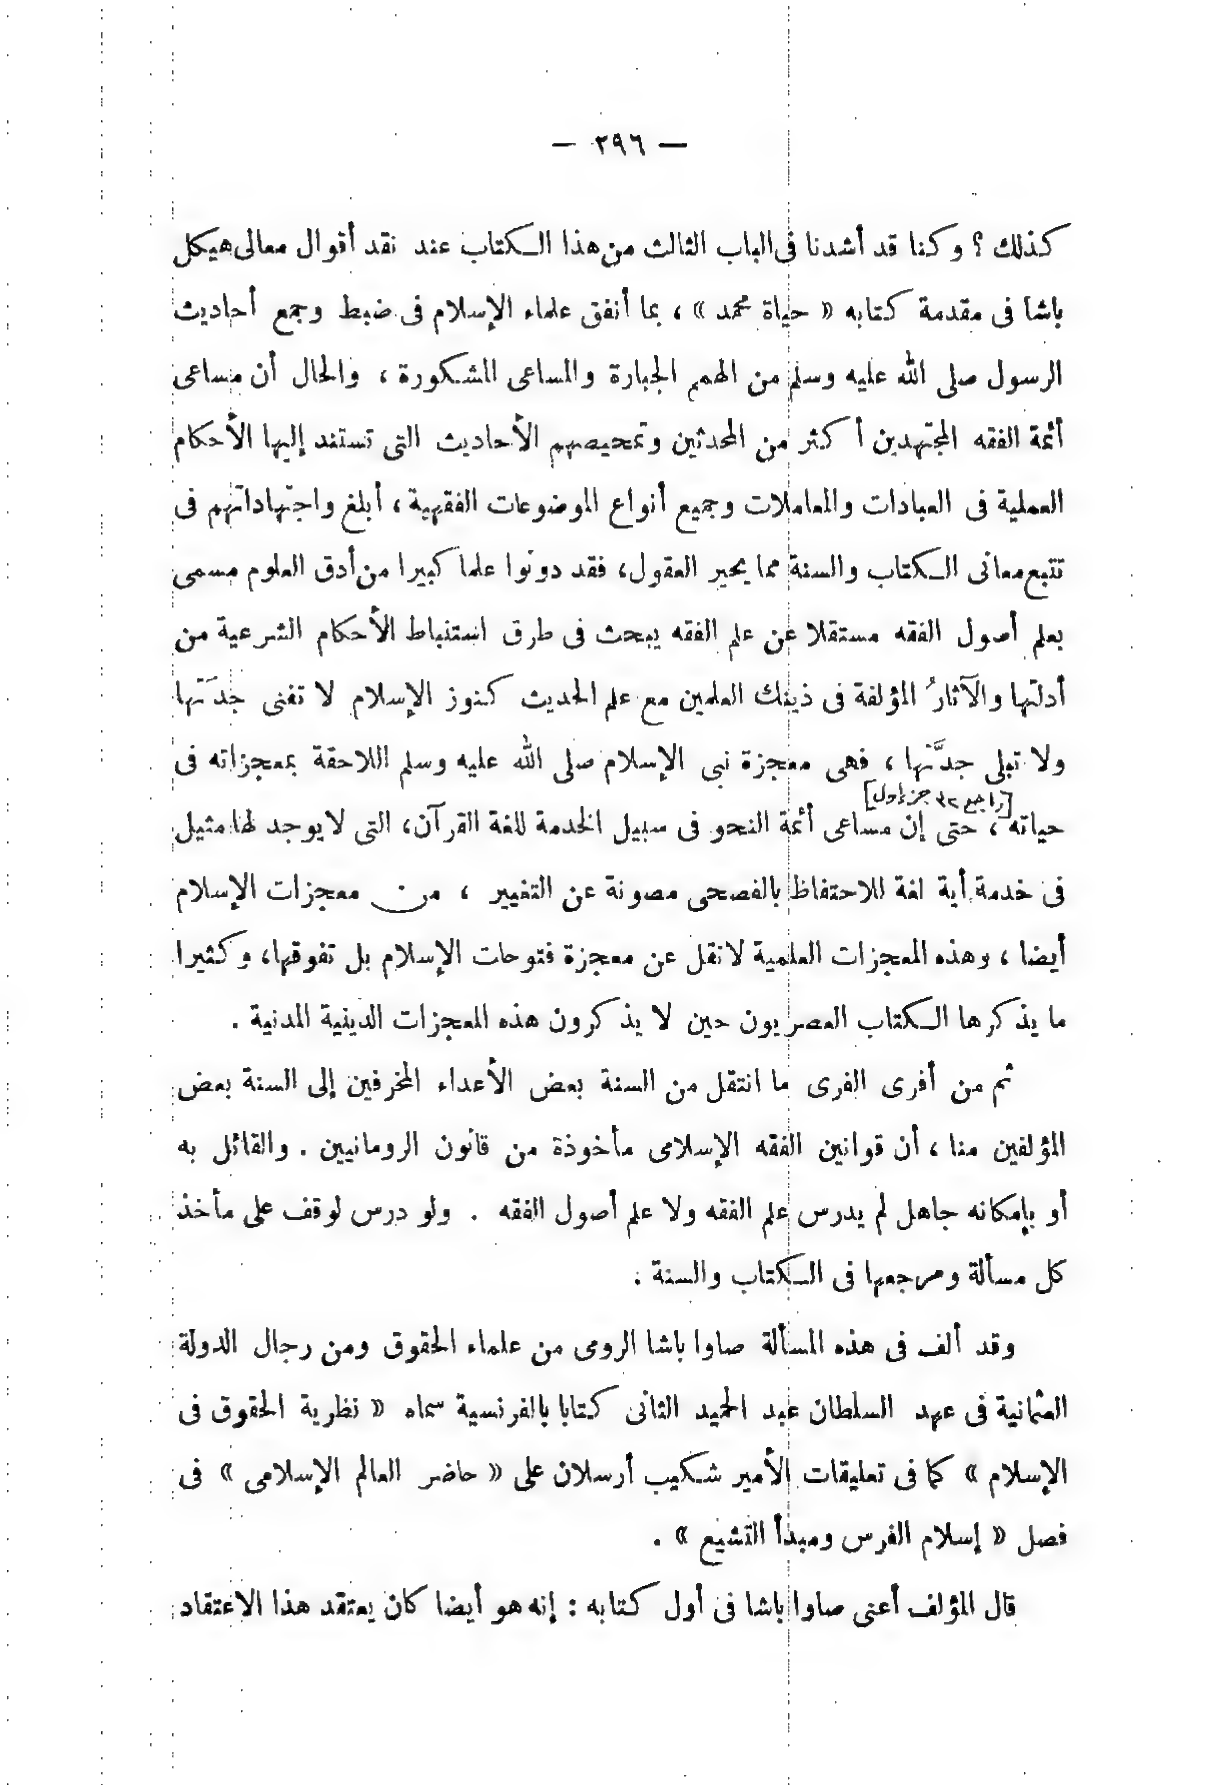 — ٢٩٦ —
كذلك ؟ وكنا قد أشدنا فى الباب الثالث من هذا الكتاب عند نقد أقوال معالى هيكل
باشا فى مقدمة كتابه « حياة محمد » ، بما أنفق علماء الإسلام فى ضبط وجمع أحاديث
الرسول صلى الله عليه وسلم من الهمم الجبارة والمساعى المشكورة ، والحال أن مساعى
أئمة الفقه المجتهدين أكثر من المحدثين وتمحيصهم الأحاديث التى تستند إليها الأحكام
العملية فى العبادات والمعاملات وجميع أنواع الموضوعات الفقهية ، أبلغ واجتهاداتهم فى
تتبع معانى الكتاب والسنة مما يحير العقول، فقد دونوا علما كبيرا من أدق العلوم مسمى
بعلم أصول الفقه مستقلا عن علم الفقه يبحث فى طرق استنباط الأحكام الشرعية من
أدلتها والآثارُ المؤلفة فى ذينك العلمين مع علم الحديث كنوز الإسلام لا تفنى جِدَتها
ولا تبلى جدَّتها ، فهى معجزة نبى الإسلام صلى الله عليه وسلم اللاحقة بمعجزاته فى
[راجع جزء اول]
حياته ، حتى إن مساعى أئمة النحو فى سبيل الخدمة للغة القرآن، التى لا يوجد لها مثيل
فى خدمة أية لغة للاحتفاظ بالفصحى مصونة عن التغيير ، من معجزات الإسلام
أيضا ، وهذه المعجزات العلمية لا نقل عن معجزة فتوحات الإسلام بل تفوقها، وكثيرا
ما يذكرها الكتاب العصريون حين لا يذكرون هذه المعجزات الدينية المدنية .
ثم من أفرى الفرى ما انتقل من السنة بعض الأعداء المخرفين إلى السنة بعض
المؤلفين منا ، أن قوانين الفقه الإسلامى مأخوذة من قانون الرومانيين . والقائل به
أو بإمكانه جاهل لم يدرس علم الفقه ولا علم أصول الفقه . ولو درس لوقف على مأخذ
كل مسألة ومرجعها فى الكتاب والسنة .
وقد ألف فى هذه المسألة صاوا باشا الرومى من علماء الحقوق ومن رجال الدولة
العثمانية فى عهد السلطان عبد الحميد الثانى كتابا بالفرنسية سماه « نظرية الحقوق فى
الإسلام » كما فى تعليقات الأمير شكيب أرسلان على « حاضر العالم الإسلامى » فى
فصل « إسلام الفرس ومبدأ التشيع » .
قال المؤلف أعنى صاوا باشا فى أول كتابه : إنه هو أيضا كان يعتقد هذا الاعتقاد